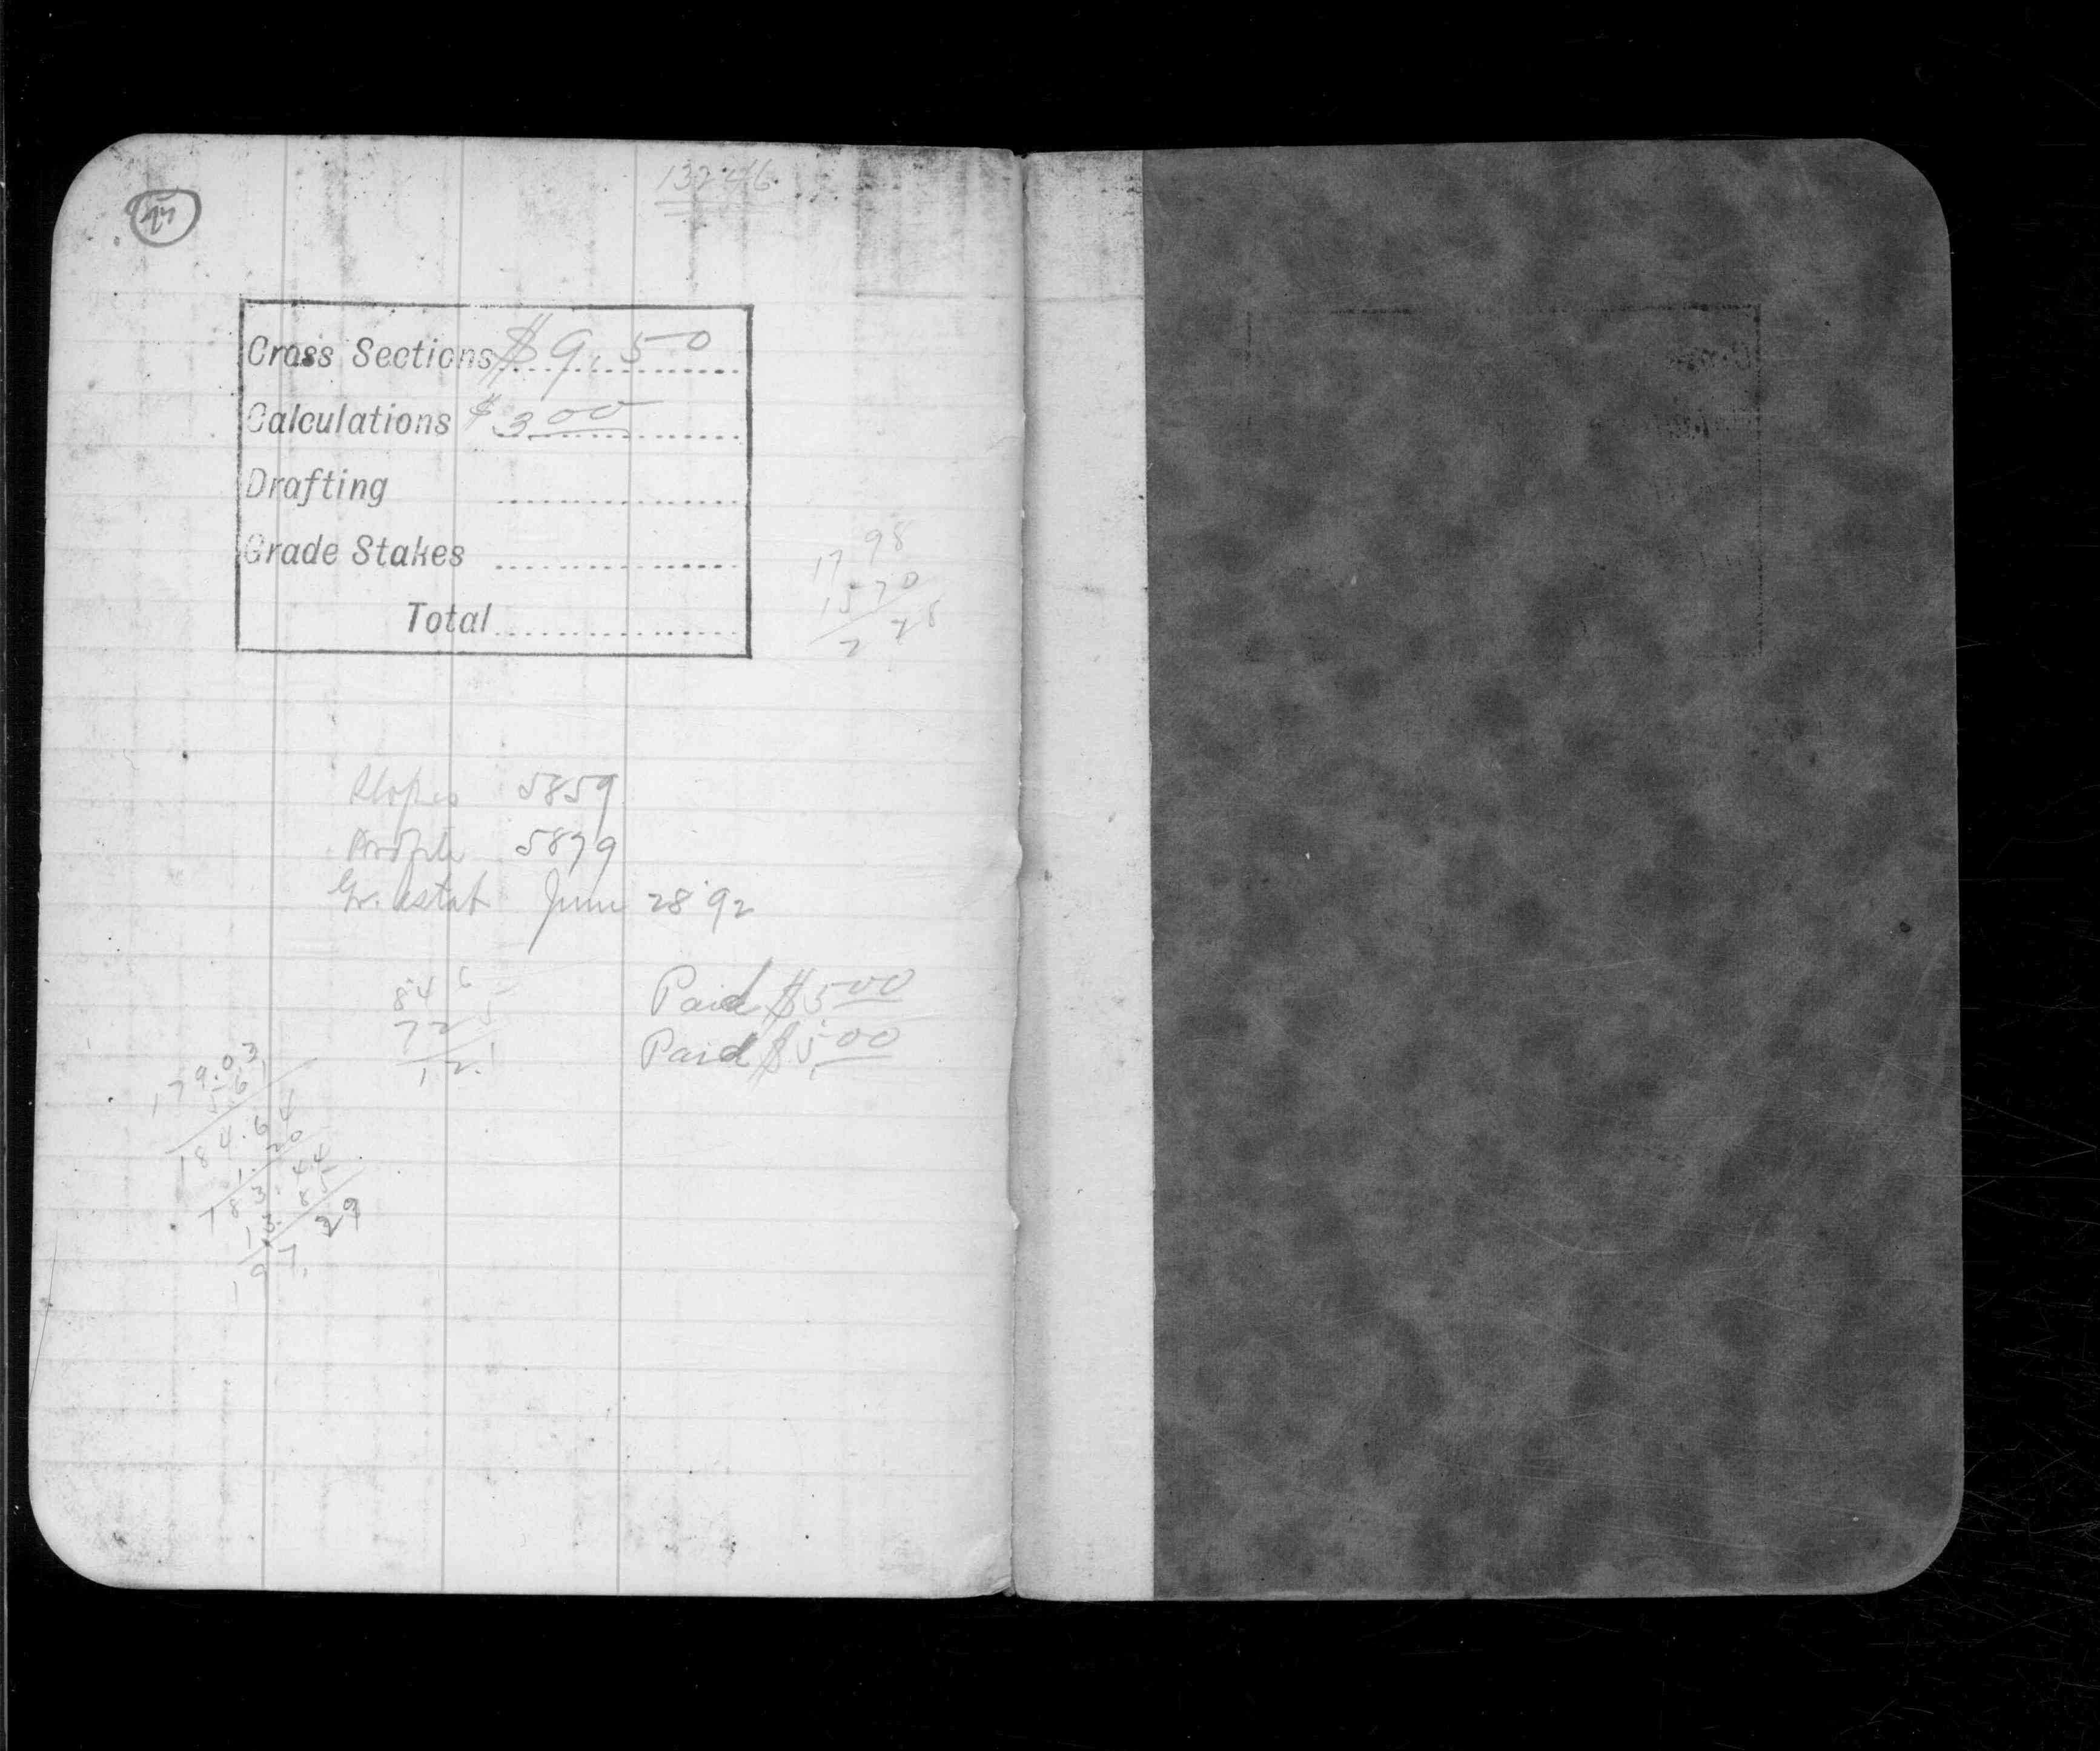 13246
Cross Sections $9.50
Calculations $3.00
Drafting
Grade Stakes
Total
17 98
15 70
2 28
Slopes 5859
Profile 5879
Gr. Estab June 28 '92
8.46
725
1 2.1
Paid $5.00
Paid $5.00
179.03
5.61
184.64
1.20
183.44
13.85
197.29